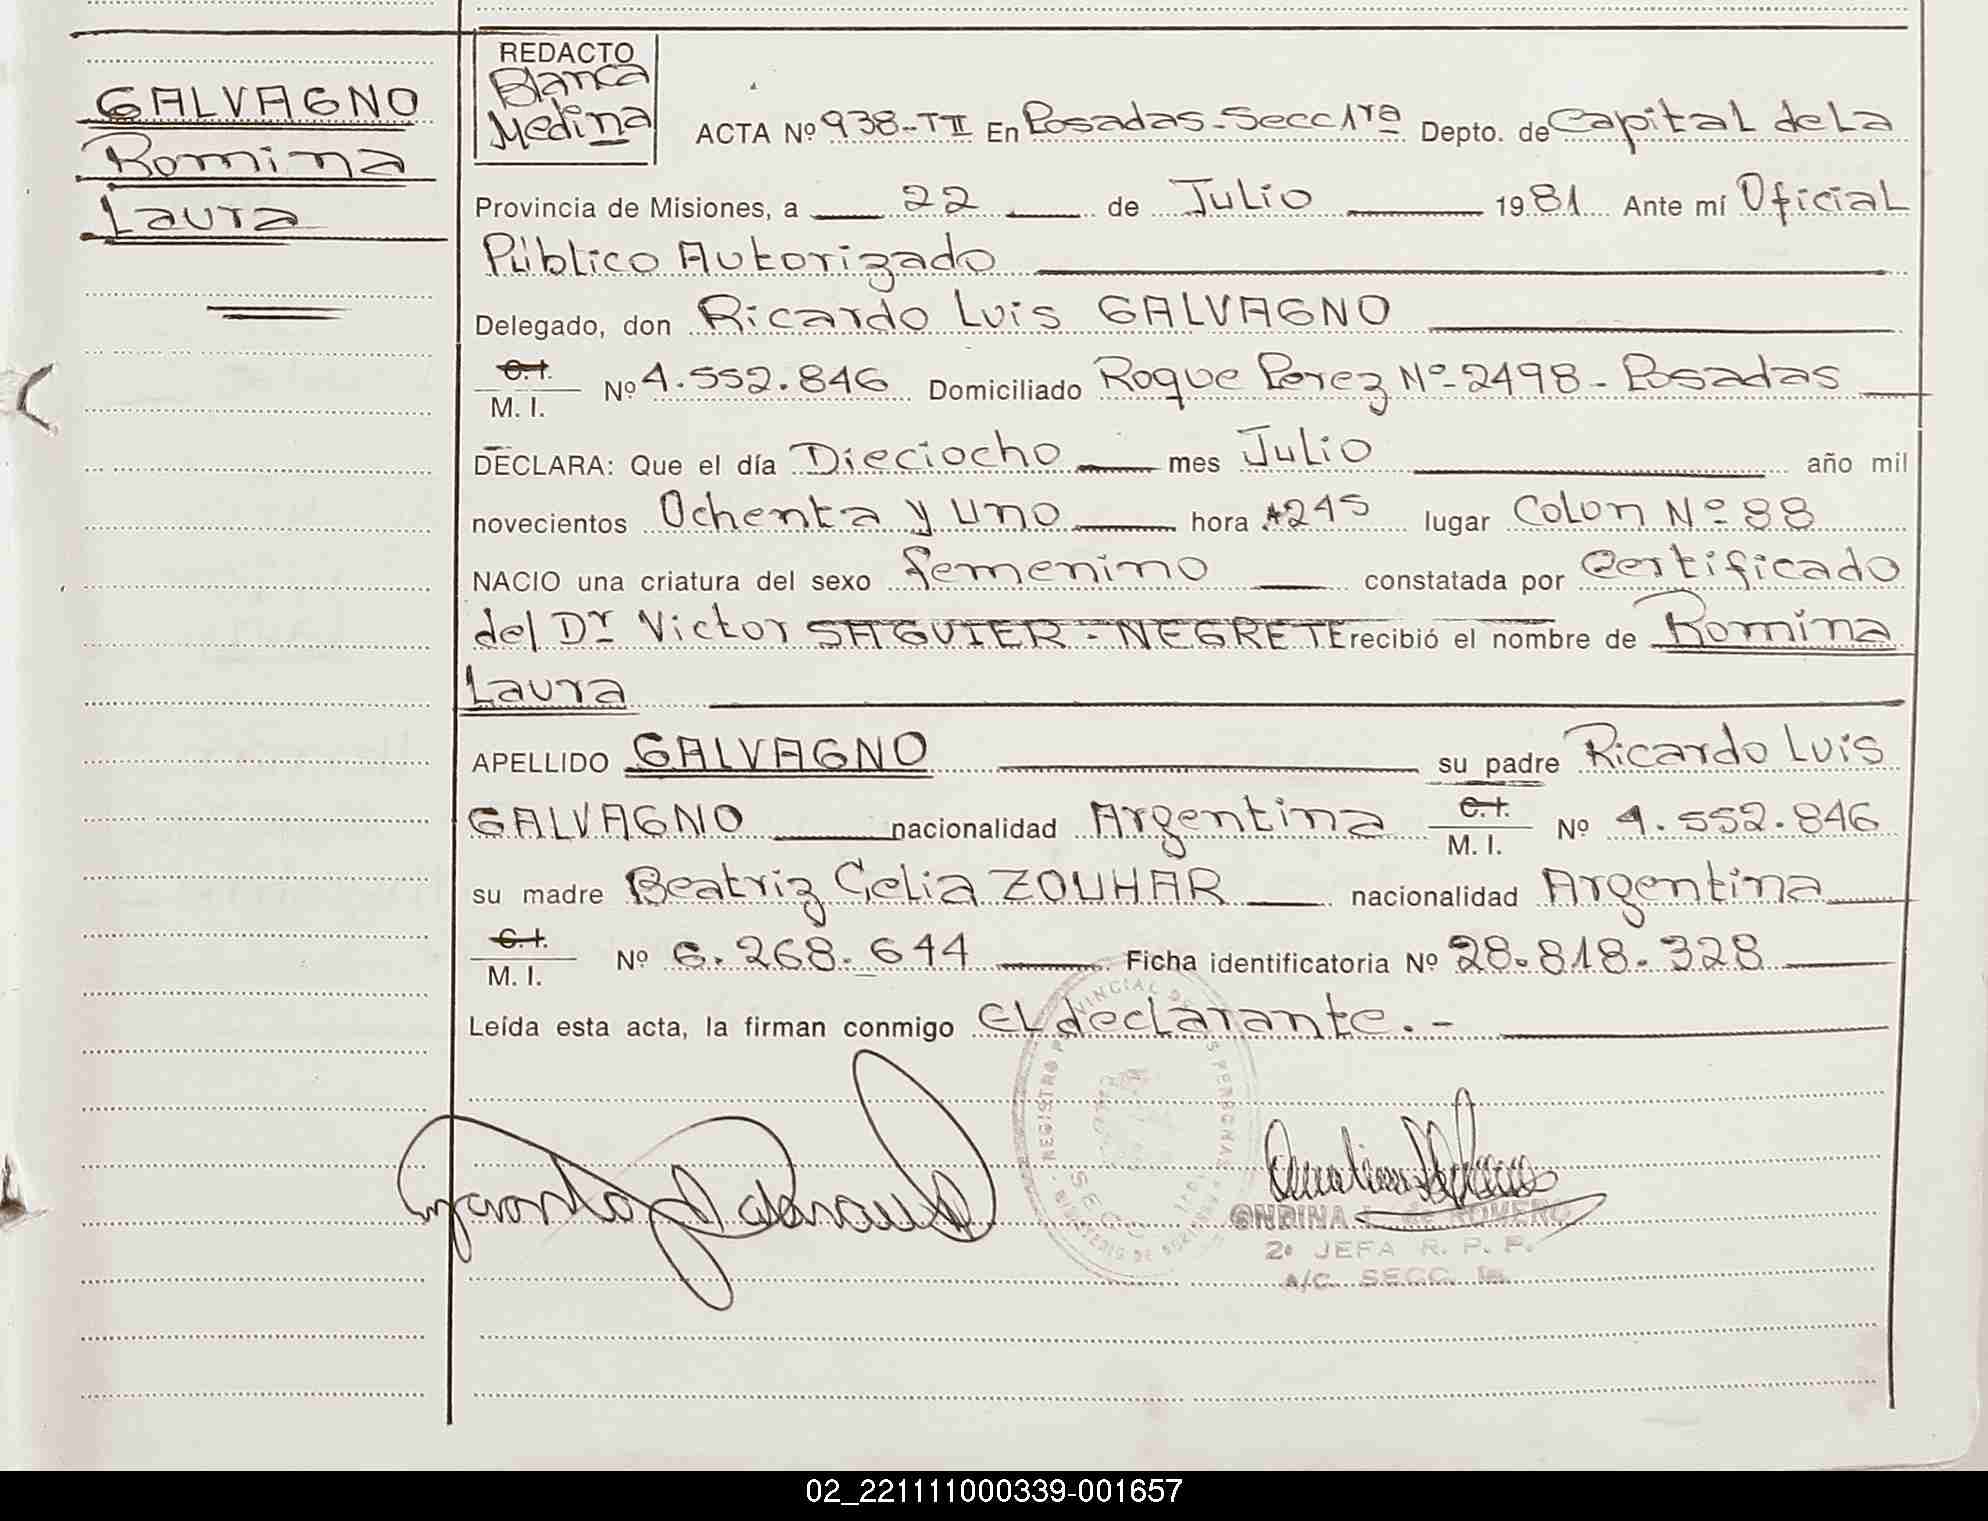 GALVAGNO
Romina
Laura
REDACTO
Blanca
Medina
ACTA Nº 938-TII En Posadas-Secc 1ra Depto. de Capital de La
Provincia de Misiones, a 22 de Julio 1981 Ante mí Oficial
Público Autorizado
Delegado, don Ricardo Luis GALVAGNO
C.I.
M. I. Nº 4.552.846 Domiciliado Roque Perez Nº-2498- Posadas
DECLARA: Que el día Dieciocho mes Julio año mil
novecientos Ochenta y uno hora 1245 lugar Colon Nº-88
NACIO una criatura del sexo femenino constatada por Certificado
del Dr Victor SAGUIER-NEGRETE recibió el nombre de Romina
Laura
APELLIDO GALVAGNO su padre Ricardo Luis
GALVAGNO nacionalidad Argentina C.I.
M. I. Nº 4.552.846
su madre Beatriz Celia ZOUHAR nacionalidad Argentina
C.I.
M. I. Nº 6.268.644 Ficha identificatoria Nº 28.818.328
Leída esta acta, la firman conmigo EL declarante.-
REGISTRO PROVINCIAL DE LAS PERSONAS
MINISTERIO DE GOBIERNO
SECC.
ONDINA DE ROMERO
2º JEFA R. P. P.
A/C. SECC. 1a.
02_221111000339-001657